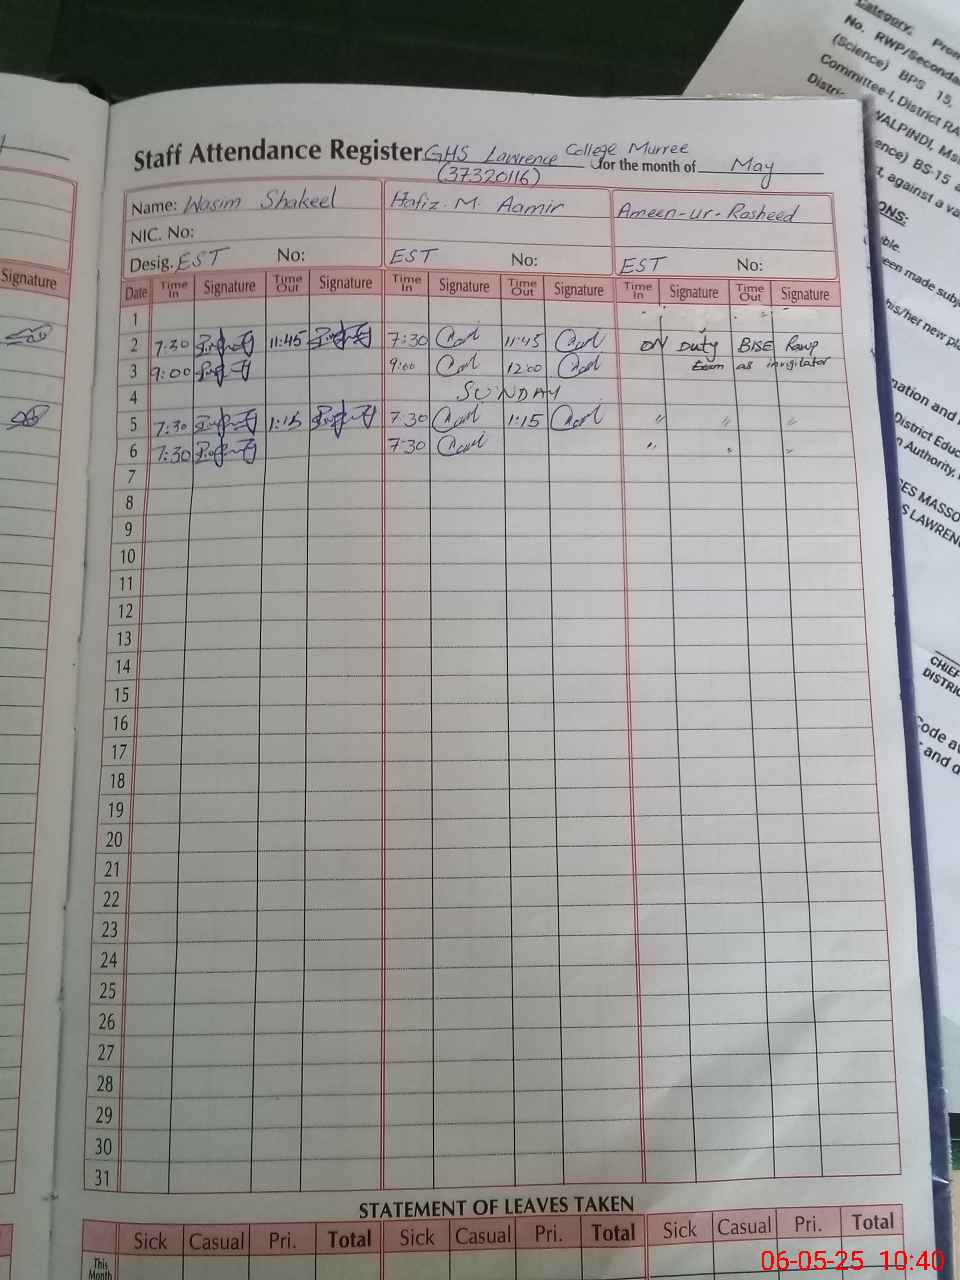 Staff Attendance Register GHS Lawrence College Murree for the month of May
(37320116)
Name: Wasim Shakeel Hafiz. M. Aamir Ameen-ur-Rasheed
NIC. No:
Desig. EST No: EST No: EST No:
Date Time In Signature Time Out Signature Time In Signature Time Out Signature Time In Signature Time Out Signature
1
2 7:30 11:45 7:30 11:45 ON Duty BISE Rawp
3 9:00 9:00 12:00 Exam as invigilator
4 SUNDAY
5 7:30 1:15 7:30 1:15 " " "
6 7:30 7:30 " " "
7
8
9
10
11
12
13
14
15
16
17
18
19
20
21
22
23
24
25
26
27
28
29
30
31
STATEMENT OF LEAVES TAKEN
Sick Casual Pri. Total Sick Casual Pri. Total Sick Casual Pri. Total
This Month
Signature
Category: 
No. RWP/Seconda
(Science) BPS 15,
Committee-I, District RA
WALPINDI,
BS-15
against a va
ONS:
een made subj
his/her new pla
nation and
District Educ
n Authority,
ES MASSO
S LAWREN
CHIEF
DISTRIC
Code av
and d
06-05-25 10:40